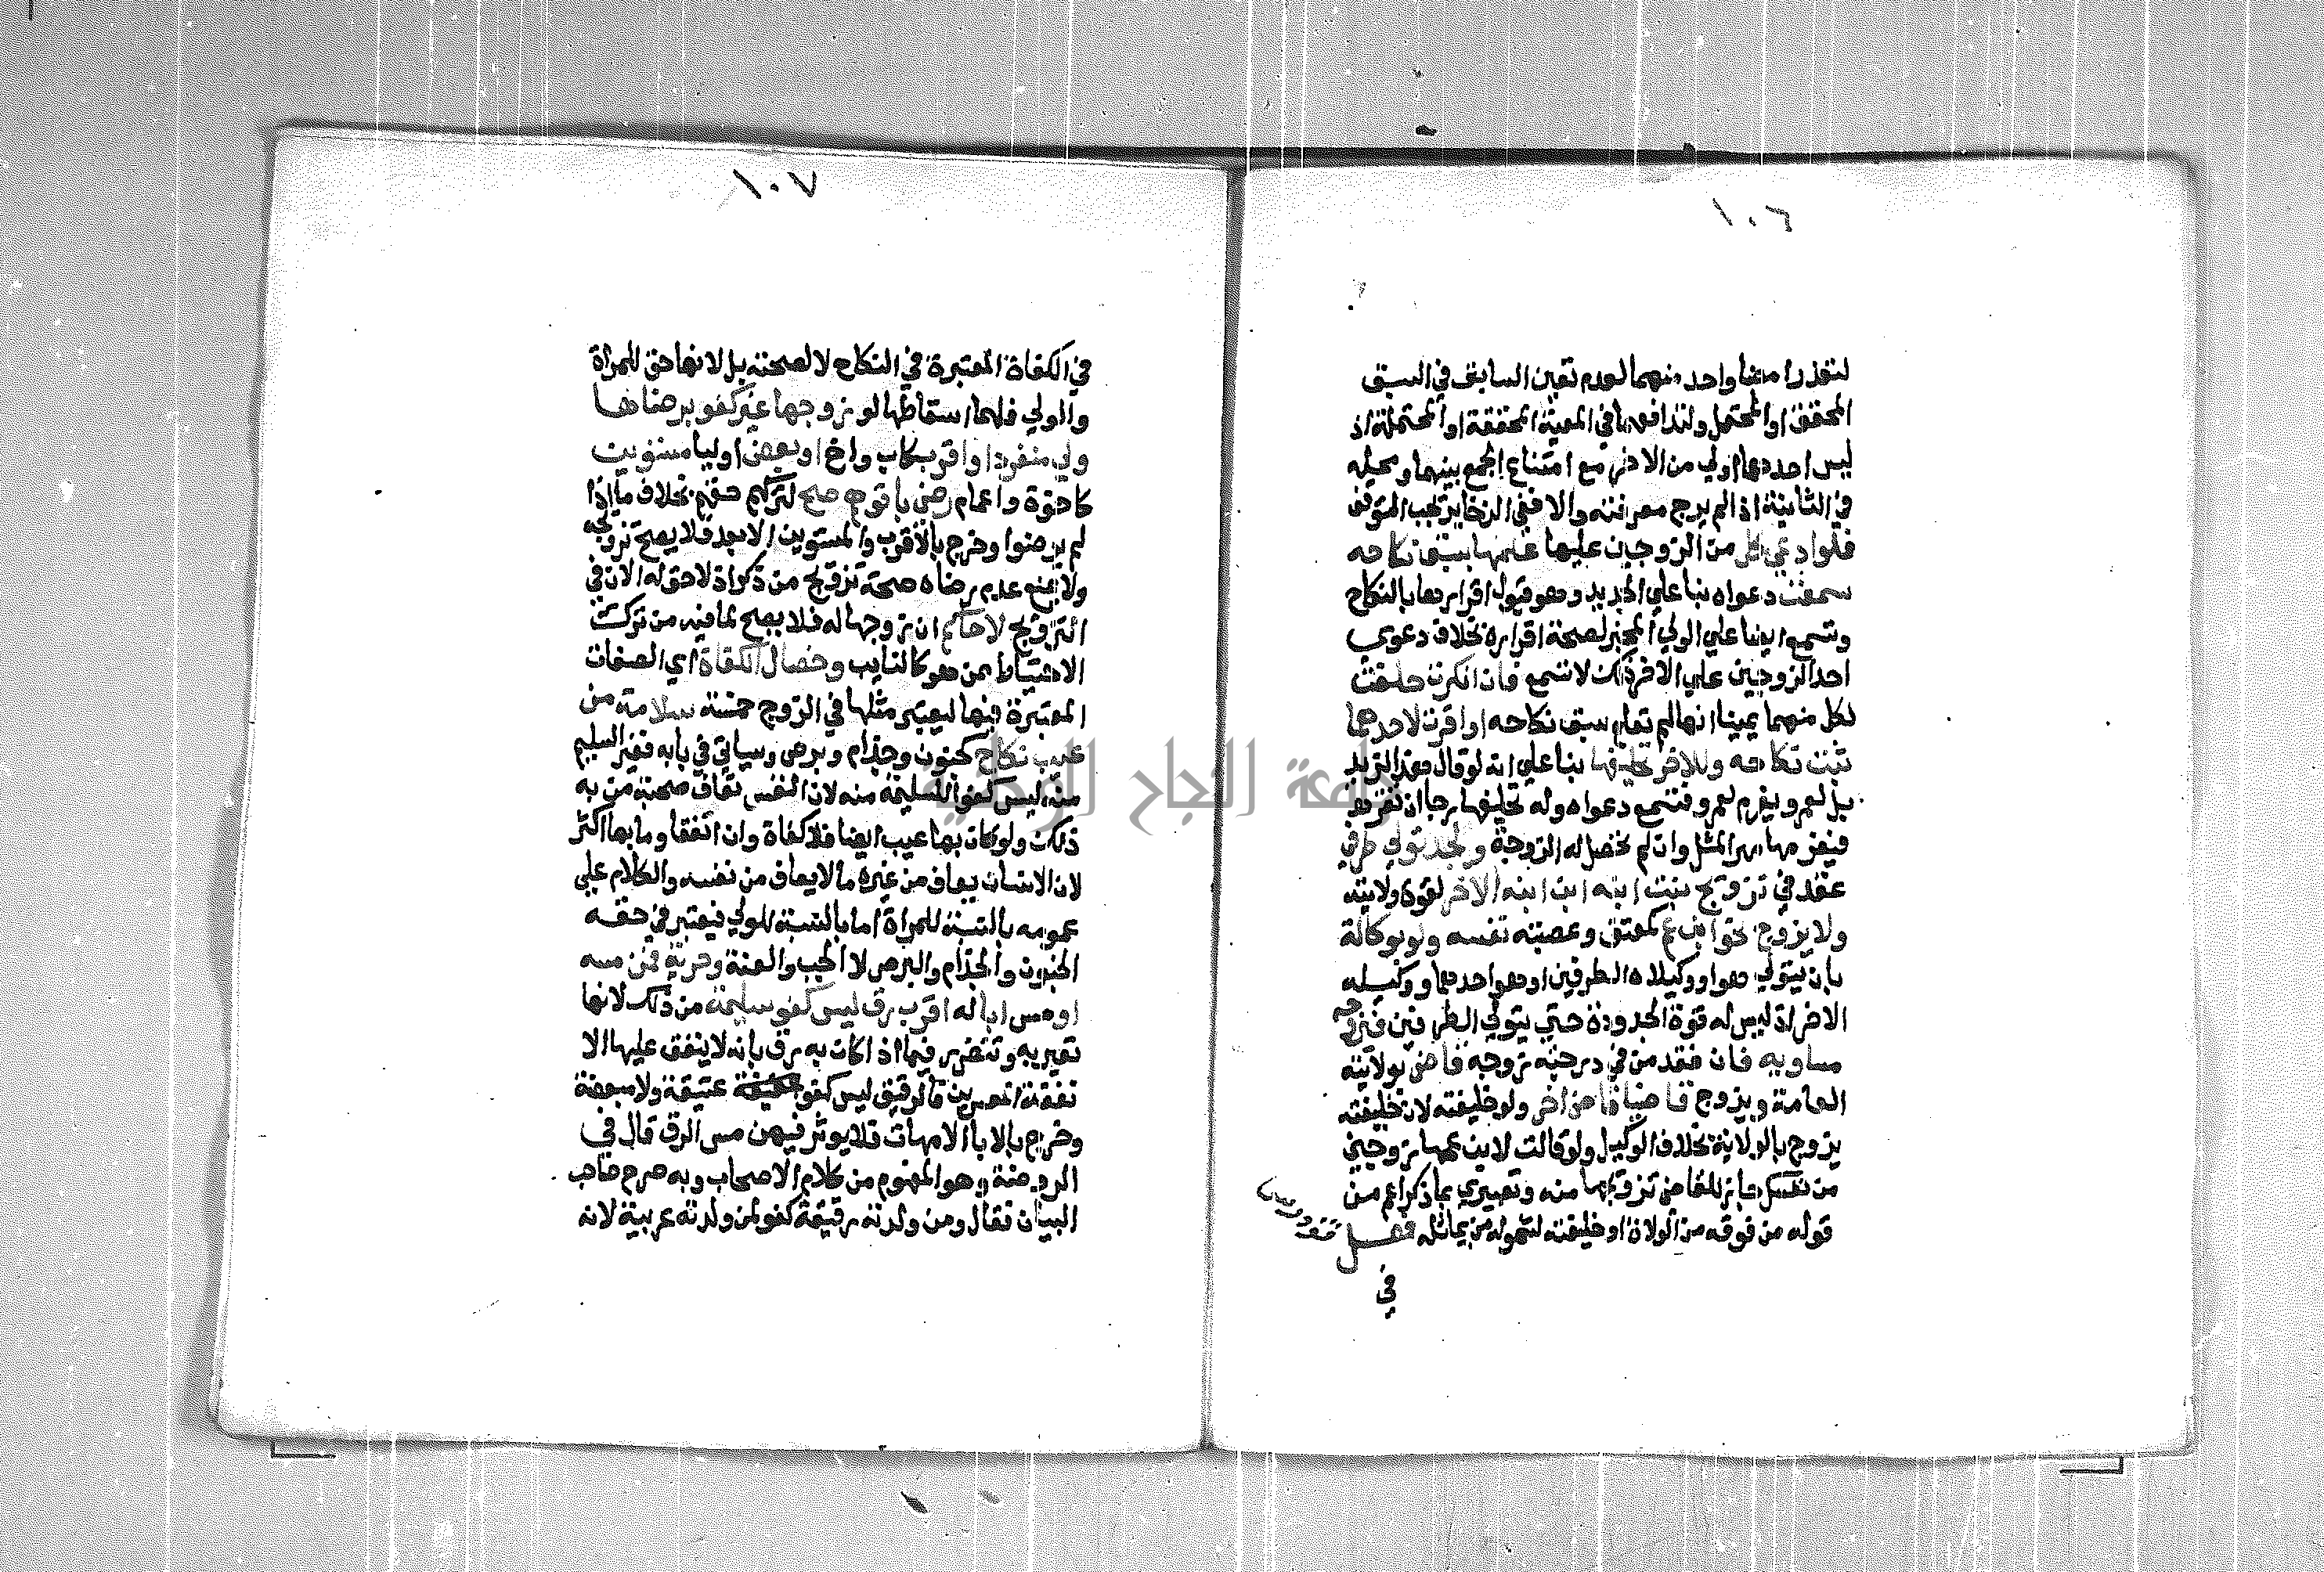 ١٠٦
لتعذر امضا واحد منهما لعدم تعين السابق في السبق
المحقق او المحتمل ولتدافعهما في المعية المحققة او المحتملة اذ
ليس احدهما اولي من الاخر مع امتناع الجمع بينهما ومحله
في الثانية اذا لم يرج معرفته والا ففي الذخاير يجب التوقف
فلو ادعي كل من الزوجين عليها علمها بسبق نكاحه
سمعت دعواه بنا علي الجديد وهو قبول اقرارها بالنكاح
وتسمع ايضا علي الولي المجبر لصحة اقراره بخلاف دعوي
احد الزوجين علي الاخر ذلك لا تسمع فان انكرت حلفت
لكل منهما يمينا انها لم تعلم سبق نكاحه او اقرت لاحدهما
ثبت نكاحه وللاخر تحليفها بنا علي انه لو قال هذا لزيد
بل لعمرو يغرم لعمرو فتسمع دعواه وله تحليفها رجا ان تقر له
فيغرمها مهر المثل وان لم تحصل له الزوجة ولجد تولي طرفي
عقد في تزويج بنت ابنه ابن ابنه الاخر لقوة ولايته
ولا يزوج نحو ابن عم كمعتق وعصبته نفسه ولو بوكالة
بان يتولي هو او وكيلاه الطرفين او هو احدهما ووكيله
الاخر اذ ليس له قوة الجدودة حتي يتولي الطرفين فيزوجه
مساويه فان فقد من في درجته زوجه قاض بولايته
العامة ويزوج قاضيا قاض اخر ولو خليفته لان خليفته
يزوج بالولاية بخلاف الوكيل ولو قالت لابن عمها زوجني
من نفسك جاز للقاضي تزويجها منه وتعبيري بما ذكر اعم من
قوله من فوقه من الولاة او خليفته لشموله من يماثله فصل
في
١٠٧
في الكفاة المعتبرة في النكاح لا لصحته بل لانها حق للمراة
والولي فلهما اسقاطها لو زوجها غير كفو برضاها
ولي منفرد او اقرب كاب واخ او بعض اوليا مستويين
كاخوة واعمام رضي باقوهم صح لتركهم حقهم بخلاف ما اذا
لم يرضوا وخرج بالاقرب والمستوين الابعد فلا يصح تزويجه
ولا يمنع عدم رضاه صحة تزويج من ذكر اذ لا حق له الان في
التزويج لا حاكم ان زوجها له فلا يصح لما فيه من ترك
الاحتياط ممن هو كالنايب وخصال الكفاة اي الصفات
المعتبرة فيها ليعتبر مثلها في الزوج خمسة سلامة من
عيب نكاح كجنون وجذام وبرص وسياتي في بابه فغير السليم
منه ليس كفوا للسليمة منه لان النفس تعاف صحبة من به
ذلك ولو كان بها عيب ايضا فلا كفاة وان اتفقا وما بها اكثر
لان الانسان يعاف من غيره ما لا يعاف من نفسه والكلام علي
عمومه بالنسبة للمراة اما بالنسبة للولي فيعتبر في حقه
الجنون والجذام والبرص لا الجب والعنة وحرية فمن مسه
او مس ابا له اقرب رق ليس كفو سليمة من ذلك لانها
تعير به وتتضرر فيما اذا كان به رق بانه لا ينفق عليها الا
نفقة المعسرين فالرقيق ليس كفو عتيقة ولا مبعضة
وخرج بالابا الامهات فلا يوثر فيهن مس الرق قال في
الروضة وهو المفهوم من كلام الاصحاب وبه صرح صاحب
البيان فقال ومن ولدته رقيقة كفو لمن ولدته عربية لانه
جامعة النجاح الوطنية